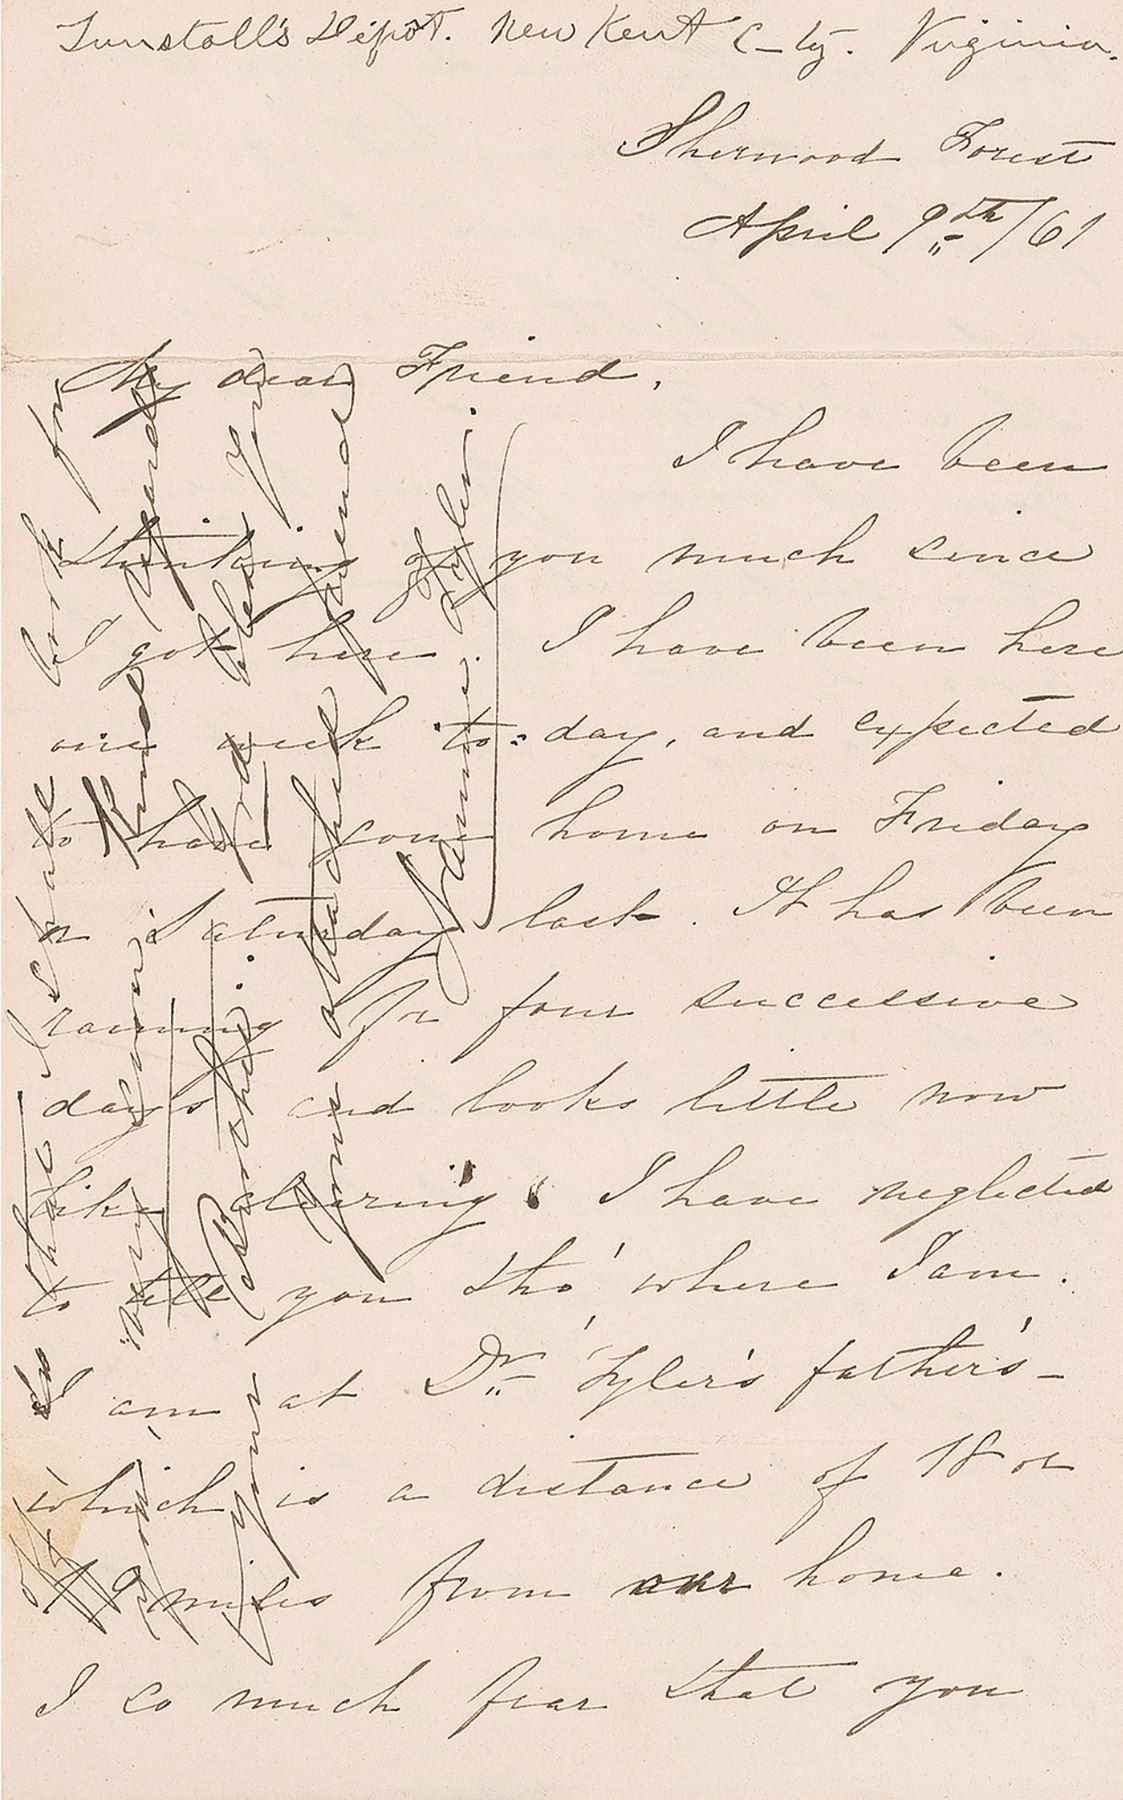 Tunstall's Depot. New Kent C-ty. Virginia.
Sherwood Forest
April 9th/61
My dear Friend,
I have been
thinking of you much since
I got here. I have been here
one week to-day, and expected
to have gone home on Friday
or Saturday last. It has been
raining for four successive
days and looks little now
like clearing. I have neglected
to tell you tho' where I am.
I am at Dr. Tyler's father's -
which is a distance of 18 or
19 miles from our home.
I so much fear that you
I shall look for
very soon. Kind regards
Brother. God bless you
your attached friend
Nannie. Tyler.